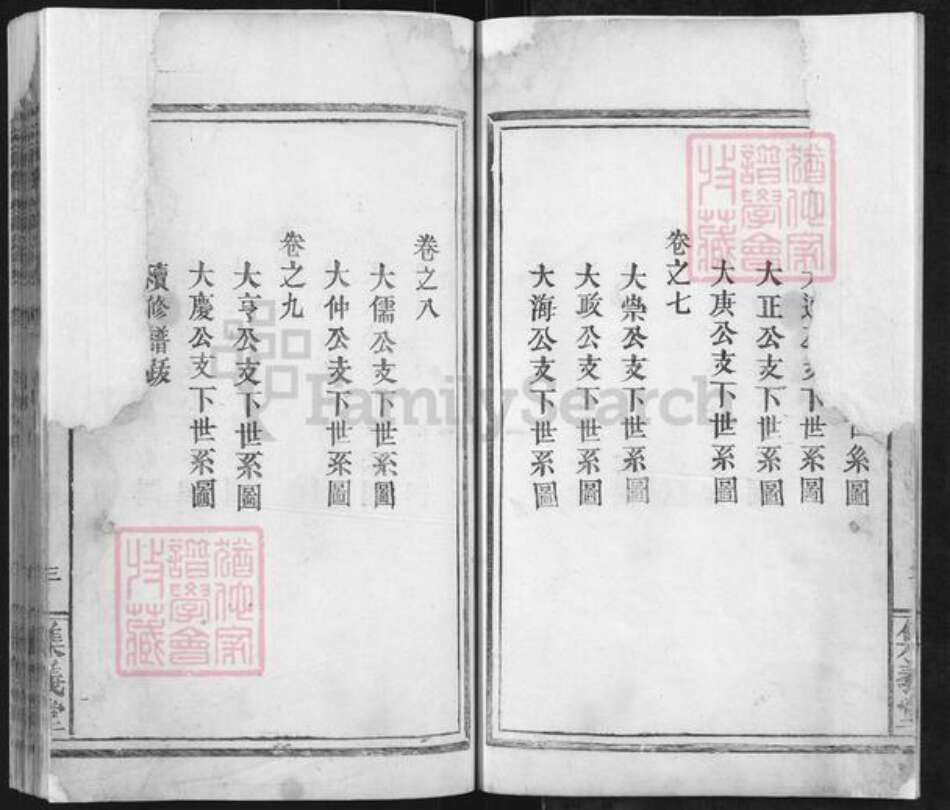 系圖
公支下世系圖
大正公支下世系圖
大庚公支下世系圖
卷之七
大崇公支下世系圖
大政公支下世系圖
大海公支下世系圖
卷之八
大儒公支下世系圖
大仲公支下世系圖
卷之九
大亨公支下世系圖
大慶公支下世系圖
續修譜跋
三
集義堂
集義堂
猶他家譜學會收藏
猶他家譜學會收藏
FamilySearch